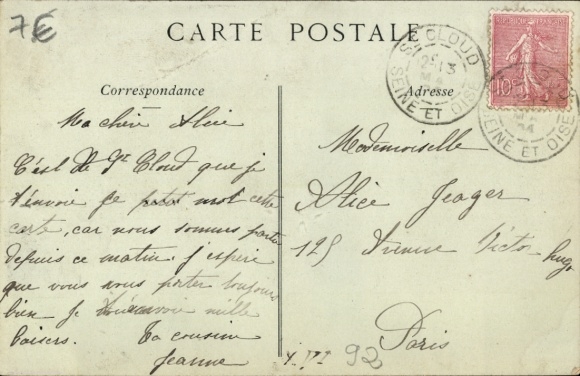 7€
CARTE POSTALE
ST CLOUD
SEINE ET OISE
REPUBLIQUE FRANÇAISE
10
SEINE ET OISE
Correspondance
Adresse
Ma chère Alice
C'est de St Cloud que je
t'envoie ce petit mot cette
carte, car nous sommes partie
depuis ce matin. j'espère
que vous vous porter toujours
bien Je mille
baisers. Ta cousine
Jeanne
Mademoiselle
Alice Jeager
125 Avenue Victor Hugo
Paris
92